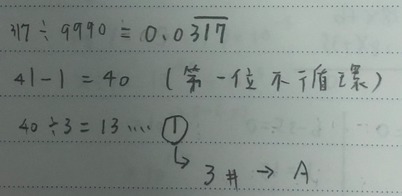 317 ÷ 9990 = 0.0317
41-1 = 40 (第一位不循环)
40÷3 = 13 ···· ①
↳ 3 # → A